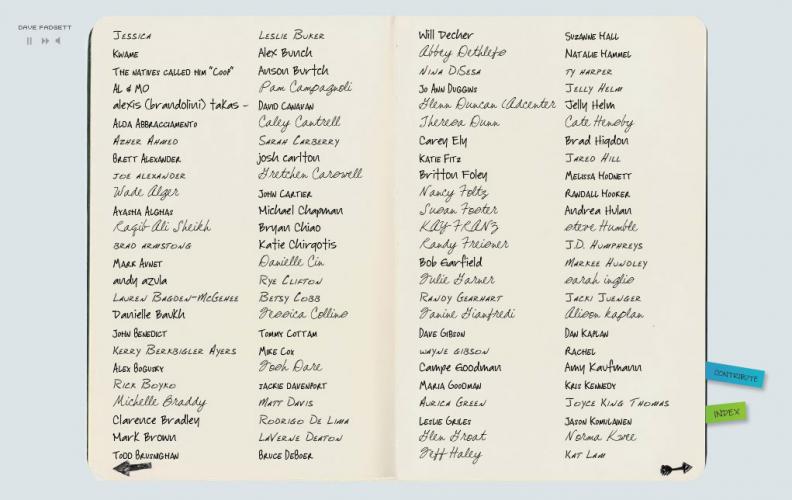 DAVE FADGETT
JESSICA
KWAME
THE NATIVES CALLED HIM "COOP"
AL & MO
alexis (brandolini) takas -
ALDA ABBRACCIAMENTO
AZHER AHMED
BRETT ALEXANDER
JOE ALEXANDER
Wade Alger
AYASHA ALGHAS
Raqib Ali Sheikh
BRAD ARMSTONG
MARK AVNET
andy azula
LAUREN BAGDEN-MCGEHEE
Danielle Baukh
JOHN BENEDICT
KERRY BERKBIGLER AYERS
ALEX BOGUSKY
RICK BOYKO
Michelle Braddy
Clarence Bradley
Mark Brown
TODD BRUSNGHAN
LESLIE BUKER
Alex Bunch
Anson Burtch
Pam Campagnoli
DAVID CANAVAN
Caley Cantrell
SARAH CARBERRY
josh carlton
Gretchen Carswell
JOHN CARTIER
Michael Chapman
Bryan Chiao
Katie Chirgotis
Danielle Cin
RYE CLIFTON
BETSY COBB
Jessica Collins
TOMMY COTTAM
MIKE COX
Josh Dare
JACKIE DAVENPORT
MATT DAVIS
RODRIGO DE LIMA
LAVERNE DEATON
BRUCE DEBOER
Will Decher
Abbey Dethlefs
NINA DISESA
JO ANN DUGGINS
Glenn Duncan (Adcenter
Theresa Dunn
Carey Ely
KATIE FITZ
Britton Foley
Nancy Foltz
Susan Foster
KAY FRANZ
Randy Freisner
Bob Garfield
Julie Garner
RANDY GEARHART
Janine Gianfredi
DAVE GIBSON
WAYNE GIBSON
Campe Goodman
MARIA GOODMAN
AURICA GREEN
LESLIE GRILES
Glen Groat
Jeff Haley
SUZANNE HALL
NATALIE HAMMEL
TY HARPER
JELLY HELM
Jelly Helm
Cate Hensby
Brad Higdon
JARED HILL
MELISSA HODNETT
RANDALL HOOKER
Andrea Hulan
steve Humble
J.D. HUMPHREYS
MARKEE HUNDLEY
sarah inglis
JACKI JUENGER
Alison Kaplan
DAN KAPLAN
RACHEL
Amy Kaufmann
KRIS KENNEDY
JOYCE KING THOMAS
JASON KOMULAINEN
Norma Kwee
KAT LAM
CONTRIBUTE
INDEX